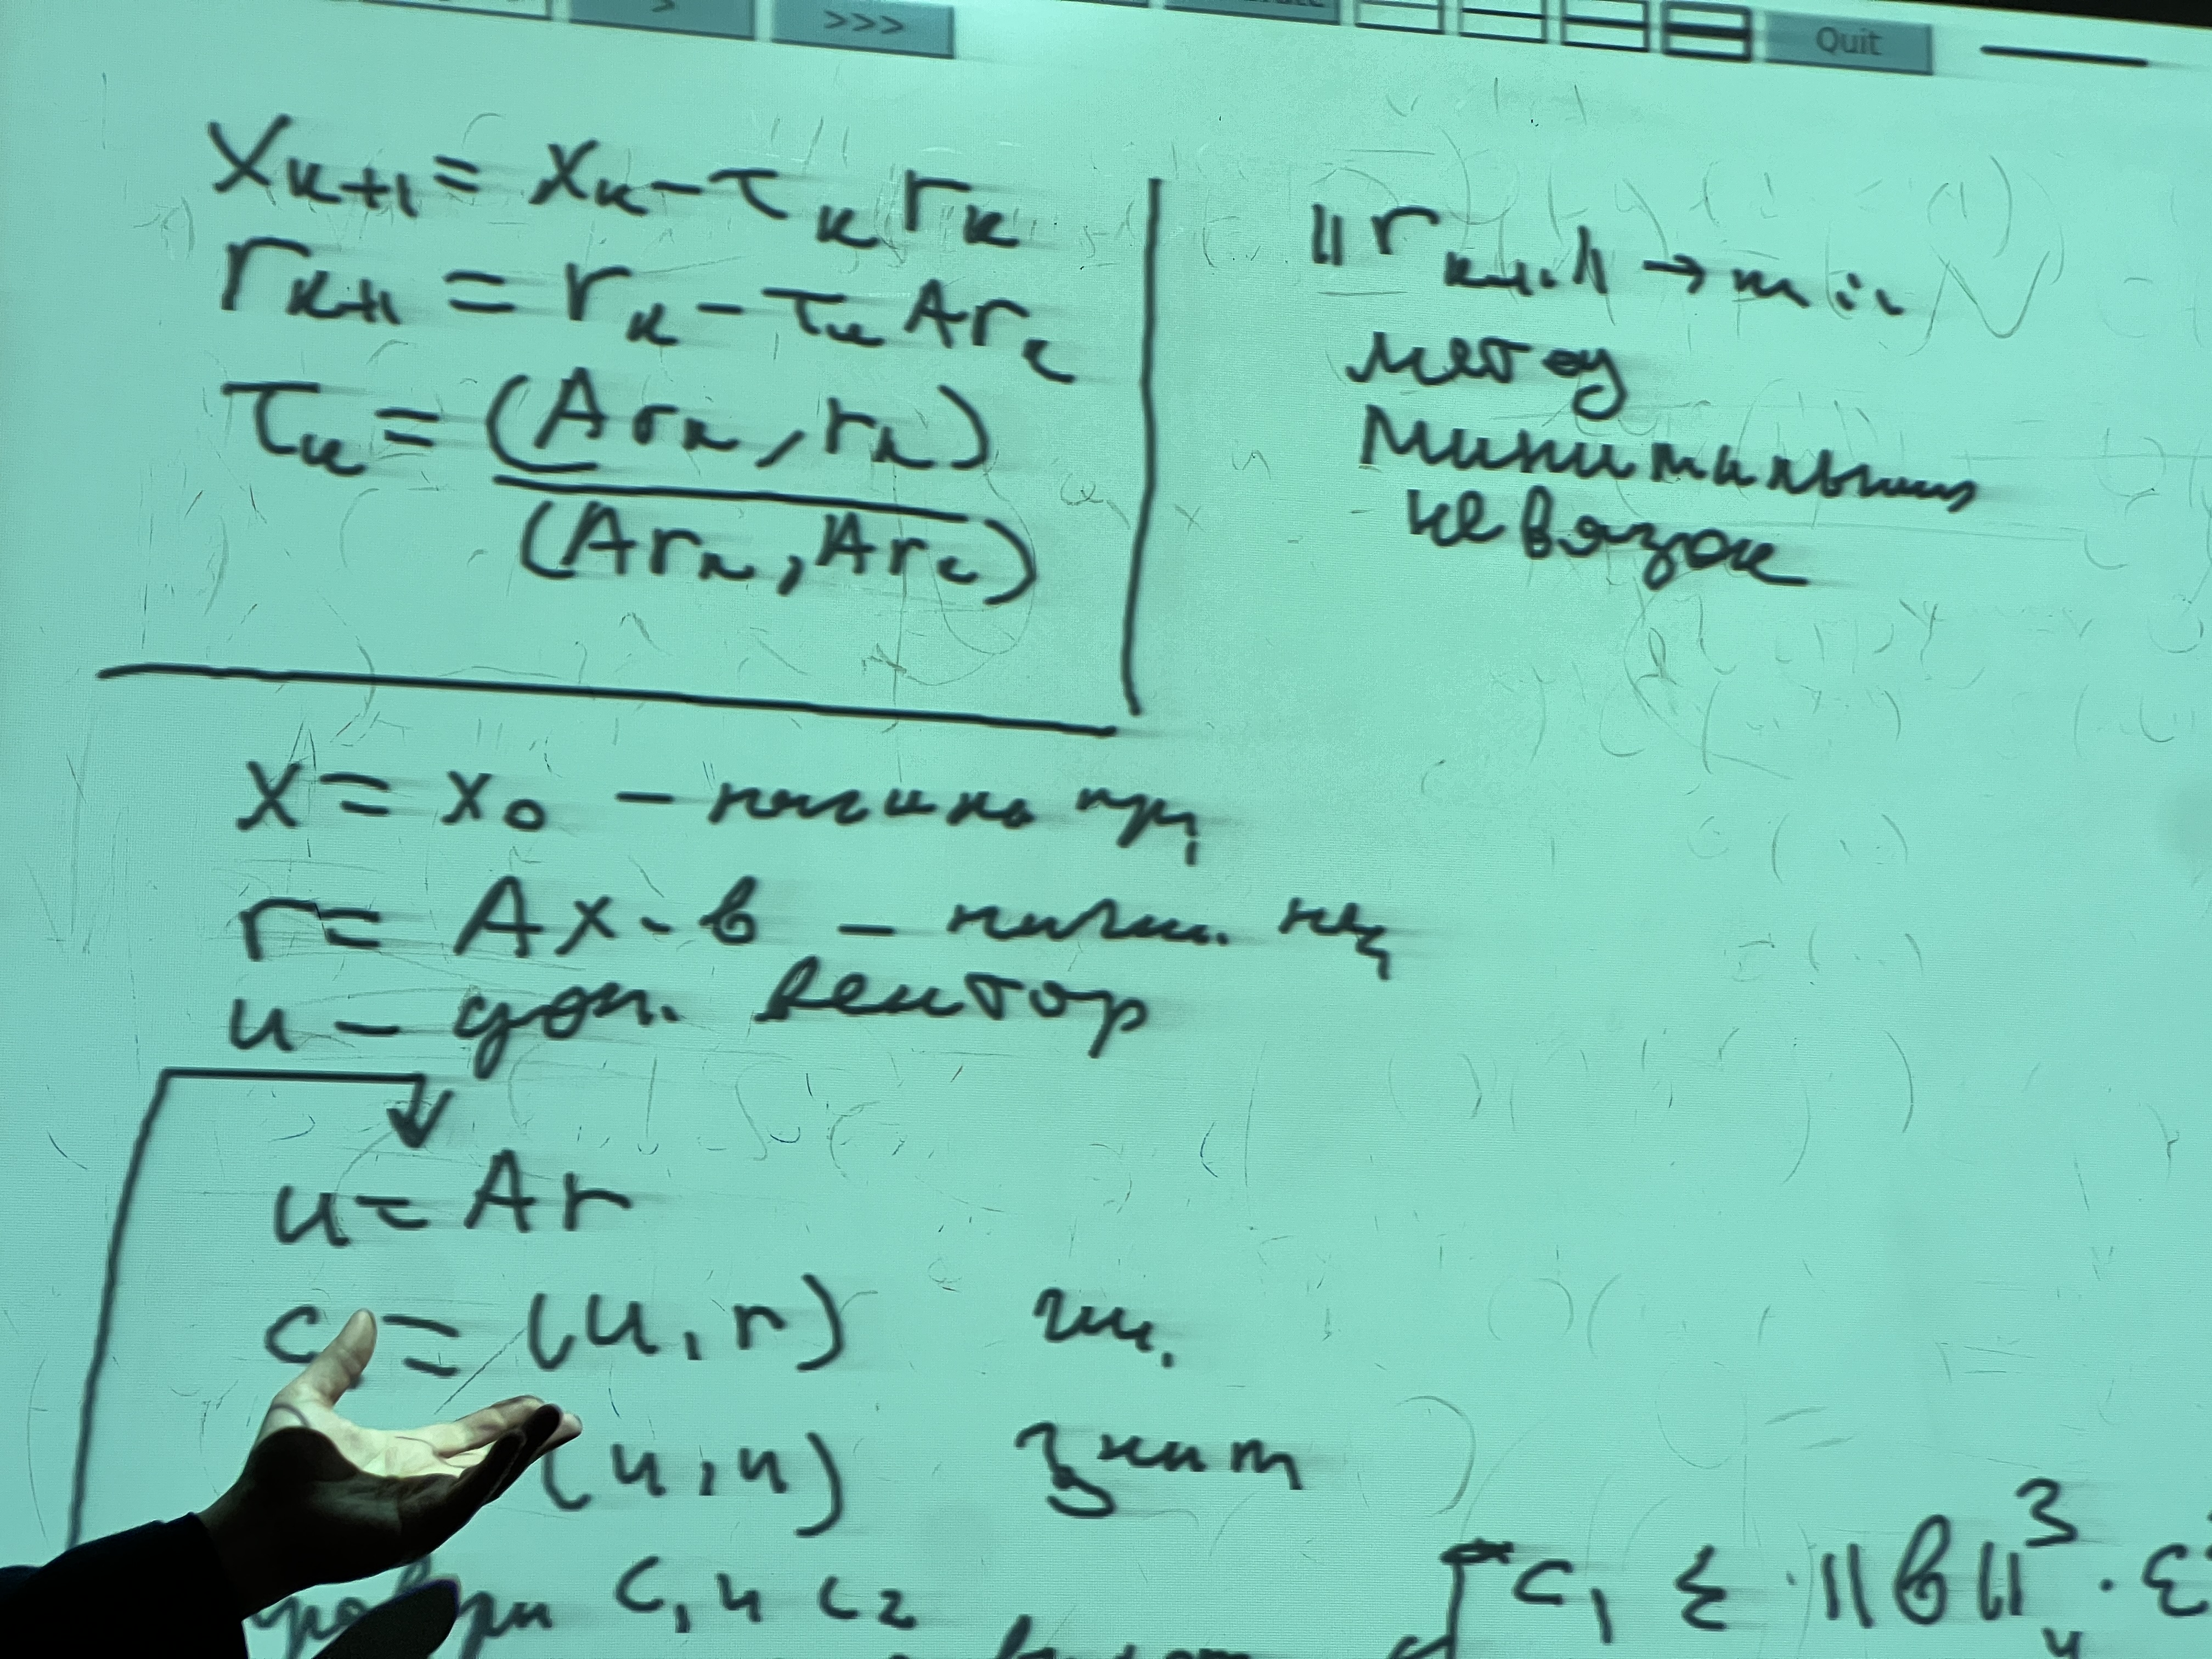 > >>> Quit
x_{k+1} = x_k - τ_k r_k
r_{k+1} = r_k - τ_k Ar_k
τ_k = (Ar_k, r_k)
(Ar_k, Ar_k)
||r_{k+1}|| → min
метод
минимальных
невязок
x = x_0 -
r = Ax - b -
u - доп. вектор
u = Ar
c = (u, r)
(u, u) знам
c_1 и c_2
c_1 ≤ · ||b||^3 · ε